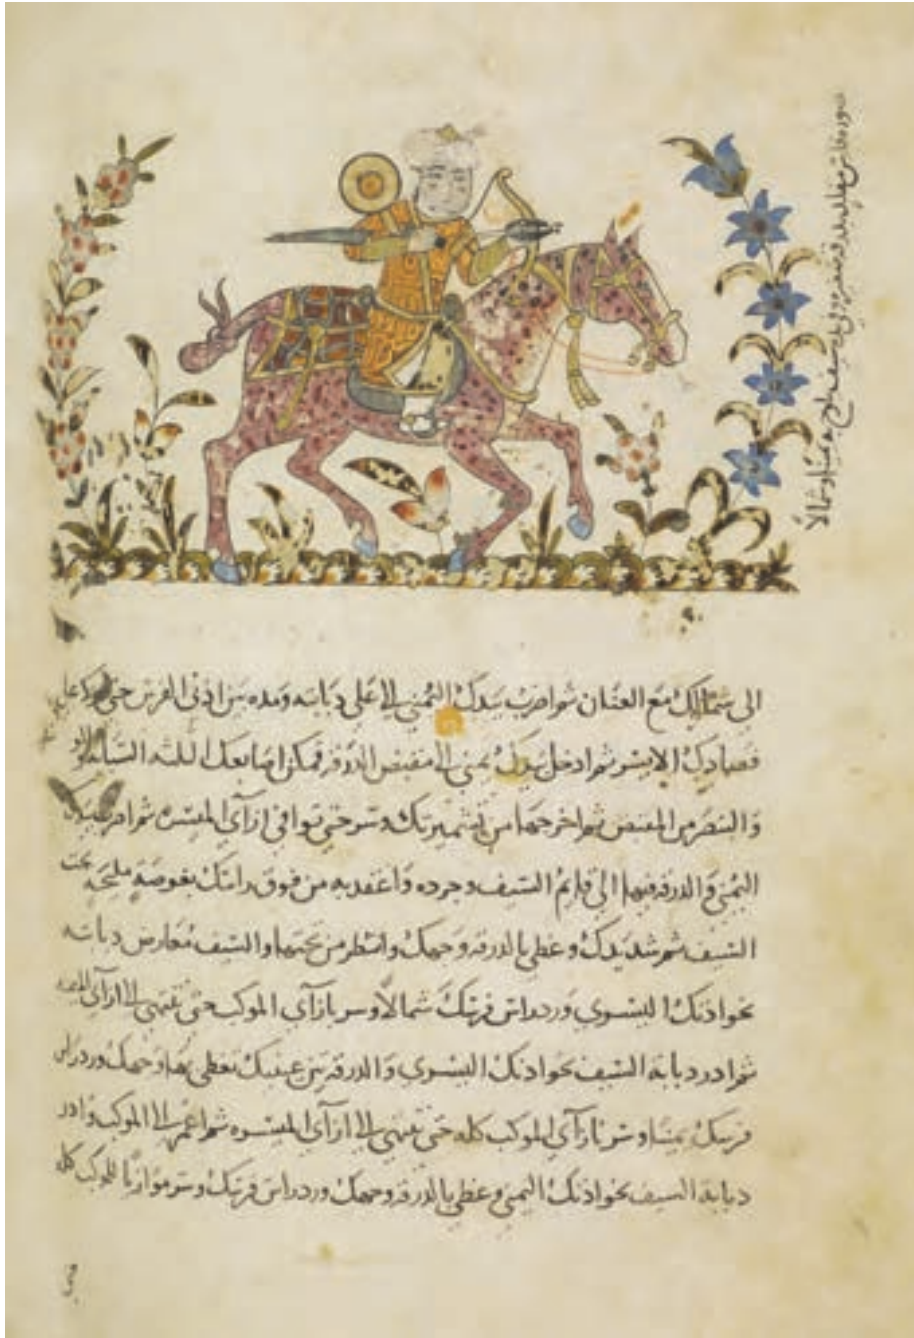 صورة فارس مقلد بدرقة صغيرة وفي يده سيف يلوح به يمينا وشمالا
الى شمالك مع العنان ثم اضرب بيدك اليمنى الى اعلى دبابته ومده بين اذنى الفرس حتى
الايسر ثم ادخل يدك اليمنى الى مقبض الدرقة فمكن اصابعك الثلثة السبابة و
والبنصر من المقبض ثم اخرجها من وسر حتى توافى ازآى الميسره ثم اضرب بيدك
اليمنى والدرقه فيها الى قايم السيف وجرده واعقد به من فوق راسك مليحة تحت
السيف ثم شد يدك وغطى بالدرقه وجهك وانظر من تحتها والسيف معارض دبابته
نحو اذنك اليسرى ورد راس فرسك شمالا وسر بازآى الموكب حتى تنتهى الى ازآى الميمنه
ثم ادر دبابة السيف نحو اذنك اليسرى والدرقه بين عينيك تغطى بها وجهك ورد راس
فرسك يمينا وسر بازآى الموكب كله حتى تنتهى الى ازآى الميسره ثم اعمر الى الموكب وادر
دبابة السيف نحو اذنك اليمنى وغطى بالدرقه وجهك ورد راس فرسك وسر موازيا للموكب كله
حتى